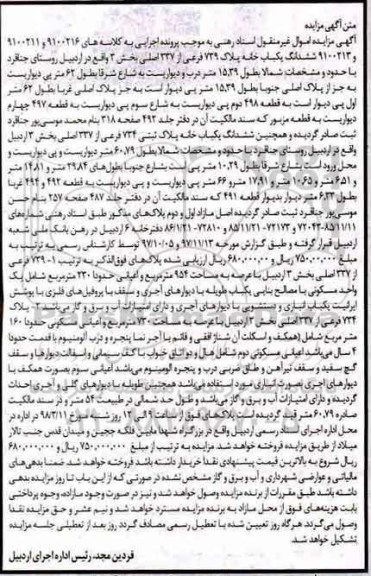 متن آگهی مزایده
آگهی مزایده اموال غیرمنقول اسناد رهنی به موجب پرونده اجرایی به کلاسه های ۹۱۰۰۲۱۶ و ۹۱۰۰۲۱۱
و ۹۱۰۰۲۱۳ ششدانگ یکباب خانه پلاک ۷۳۹ فرعی از ۳۳۷ اصلی بخش ۳ واقع در اردبیل روستای جناقرد
با حدود و مشخصات شمالا بطول ۱۵٫۳۹ متر درب و دیواریست به شارع شرقا بطول ۶۲ متر پی دیواریست
به جز از پلاک اصلی جنوبا بطول ۱۵٫۳۹ متر پی دیوار است به جز پلاک اصلی غربا بطول ۶۲ متر
اول پی دیوار است به قطعه ۴۹۸ دوم پی دیواریست به شارع سوم پی دیواریست به قطعه ۴۹۷ چهارم
دیواریست به قطعه مزبور که سند مالکیت آن در دفتر جلد ۴۹۲ صفحه ۳۱۸ بنام محمد موسی‌پور جناقرد
ثبت صادر گردیده و همچنین ششدانگ یکباب خانه پلاک ثبتی ۷۳۴ فرعی از ۳۳۷ اصلی بخش ۳ اردبیل
واقع در اردبیل روستای جناقرد با حدود و مشخصات: شمالا بطول ۶۰٫۷۹ متر دیواریست و پی دیواریست و
محل ورود است بشارع شرقا بطول ۱۰٫۲۹ متر پی است بشارع جنوبا بطول‌های ۲۹٫۸۴ متر و ۱۴٫۸۱ متر
و ۶٫۵۱ متر و ۱۰٫۶۵ متر و ۱۷٫۹۱ مترو ۶۶ متر پی دیواریست و پی دیواریست به قطعه ۴۹۲ و ۴۹۴ غربا
بطول ۶٫۳۳ متر دیوار بدیوار قطعه ۴۹۱ که سند مالکیت آن در دفتر جلد ۴۸۷ صفحه ۲۵۷ بنام حسن
موسی‌پور جناقرد ثبت صادر گردیده اصل مازاد اول و دوم پلاک‌های مذکور طبق اسناد رهنی شماره‌های
۷۲۰۴۳-۸۵/۱۱/۱۱ و ۷۲۱۷۳-۸۵/۱۱/۲۱ و ۷۲۸۱۰-۸۶/۱/۲۱ دفترخانه ۶ اردبیل در رهن بانک ملی شعبه
اردبیل قرار گرفته و طبق گزارش مورخه ۹۷/۱۱/۱۳ و ۹۷/۱۰/۰۵ توسط کارشناس رسمی به ترتیب به
مبلغ ۷۵۰٫۰۰۰٫۰۰۰ ریال و ۶۸۰٫۰۰۰٫۰۰۰ ریال ارزیابی شده پلاک‌های فوق‌الذکر به ترتیب ۱- ۷۳۹ فرعی
از ۳۳۷ اصلی بخش ۳ اردبیل با عرصه به مساحت ۹۵۴ مترمربع و اعیانی حدودا ۲۳۰ مترمربع شامل یک
واحد مسکونی با مصالح بنایی یکباب طویله با دیوارهای آجری و سقف با پروفیل‌های فلزی با پوشش
ایرانیت یکباب انباری و دستشویی با دیوارهای آجری و دارای امتیازات آب و برق و گاز می‌باشد ۲- پلاک
۷۳۴ فرعی از ۳۳۷ اصلی بخش ۳ اردبیل با عرصه به مساحت ۷۳۰ مترمربع و اعیانی مسکونی حدودا ۱۶۰
متر مربع شامل (همکف و اسکلت آن شناژ افقی و قائم با آجر نما پنجره و درب آلومینیوم با قدمت حدودا
۴ سال می‌باشد اعیانی مسکونی دوم شامل هال و دو اتاق خواب با کف سیمانی و لیفات دیوارها و سقف
گچ سفید و سقف تیرآهن و طاق ضربی درب و پنجره آلومینیوم می‌باشد اعیانی سوم بصورت همکف با
دیوارهای آجری بصورت انباری مورد استفاده می‌باشد همچنین طویله با دیوارهای گلی و آجری احداث
گردیده و دارای امتیازات آب و برق و گاز می‌باشد و طول حد شمالی در طبیعت ۵۴ متر و در سند مالکیت
صادره ۶۰٫۷۹ متر قید گردیده است پلاک‌های فوق از ساعت ۹ الی ۱۲ روز شنبه مورخ ۹۸/۳/۱۱ در اداره در
محل اداره اجرای اسناد رسمی اردبیل واقع در بزرگراه شهدا مابین فلکه ججین و میدان قدس جنب تالار
میلاد از طریق مزایده فروخته خواهد شد مزایده به ترتیب از مبلغ ۷۵۰٫۰۰۰٫۰۰۰ ریال و ۶۸۰٫۰۰۰٫۰۰۰
ریال شروع به بالاترین قیمت پیشنهادی نقدا خریدار داشته باشد فروخته خواهد شد ضمنا بدهی‌های
مالیاتی و عوارضی شهرداری و آب و برق و گاز مشخص نشده در صورتی که از این باب تا روز مزایده بدهی
داشته باشد طبق مقررات از برنده مزایده وصول خواهد شد و نیز در صورت وجود مازاده، وجوه پرداختی
بابت هزینه‌های فوق از محل مازاد به برنده مزایده مسترد خواهد شد و نیم عشر و حق مزایده نقدا
وصول می‌گردد هرگاه روز تعیین شده با تعطیل رسمی مصادف گردد روز بعد از تعطیلی جلسه مزایده
تشکیل خواهد شد.
فردین مجد، رئیس اداره اجرای اردبیل